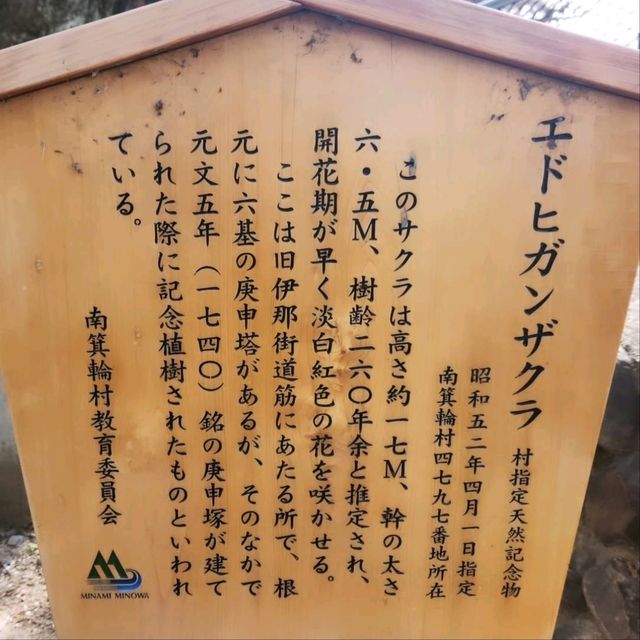 エドヒガンザクラ
村指定天然記念物
昭和五二年四月一日指定
南箕輪村四七九七番地所在
このサクラは高さ約一七M、幹の太さ
六・五M、樹齢二六〇年余と推定され、
開花期が早く淡白紅色の花を咲かせる。
ここは旧伊那街道筋にあたる所で、根
元に六基の庚申塔があるが、そのなかで
元文五年（一七四〇）銘の庚申塚が建て
られた際に記念植樹されたものといわれ
ている。
南箕輪村教育委員会
MINAMI MINOWA